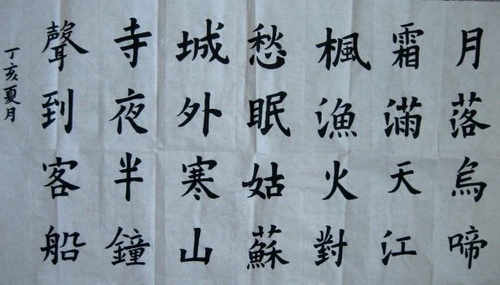 月落烏啼
霜滿天江
楓漁火對
愁眠姑蘇
城外寒山
寺夜半鐘
聲到客船
丁亥夏月